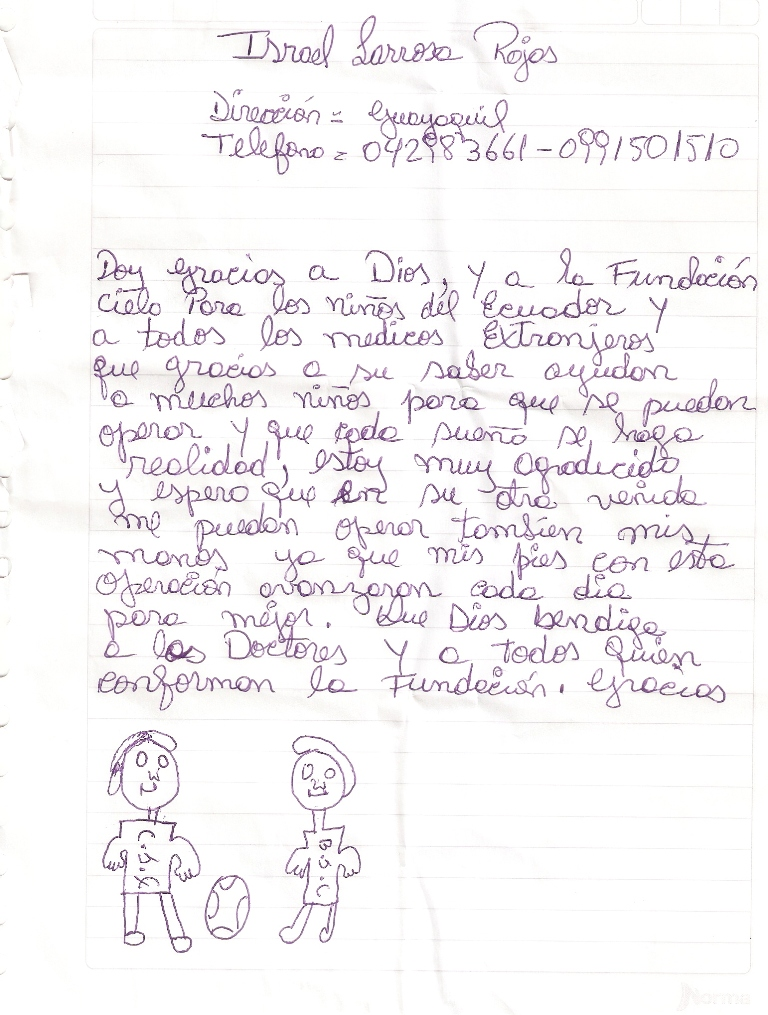 Israel Larrosa Rojas
Dirección = Guayaquil
Telefono = 042983661 - 0991501510
Doy gracias a Dios, y a la Fundación
cielo Para los niños del Ecuador y
a todos los medicos Extranjeros
que gracias a su saber ayudan
a muchos niños para que se puedan
operar y que cada sueño se haga
realidad, estoy muy agradecido
y espero que en su otra venida
me puedan operar tambien mis
manos ya que mis pies con esta
Operación avanzaran cada dia
para mejor. Que Dios bendiga
a los Doctores y a todos quien
conforman la Fundación. Gracias
Norma